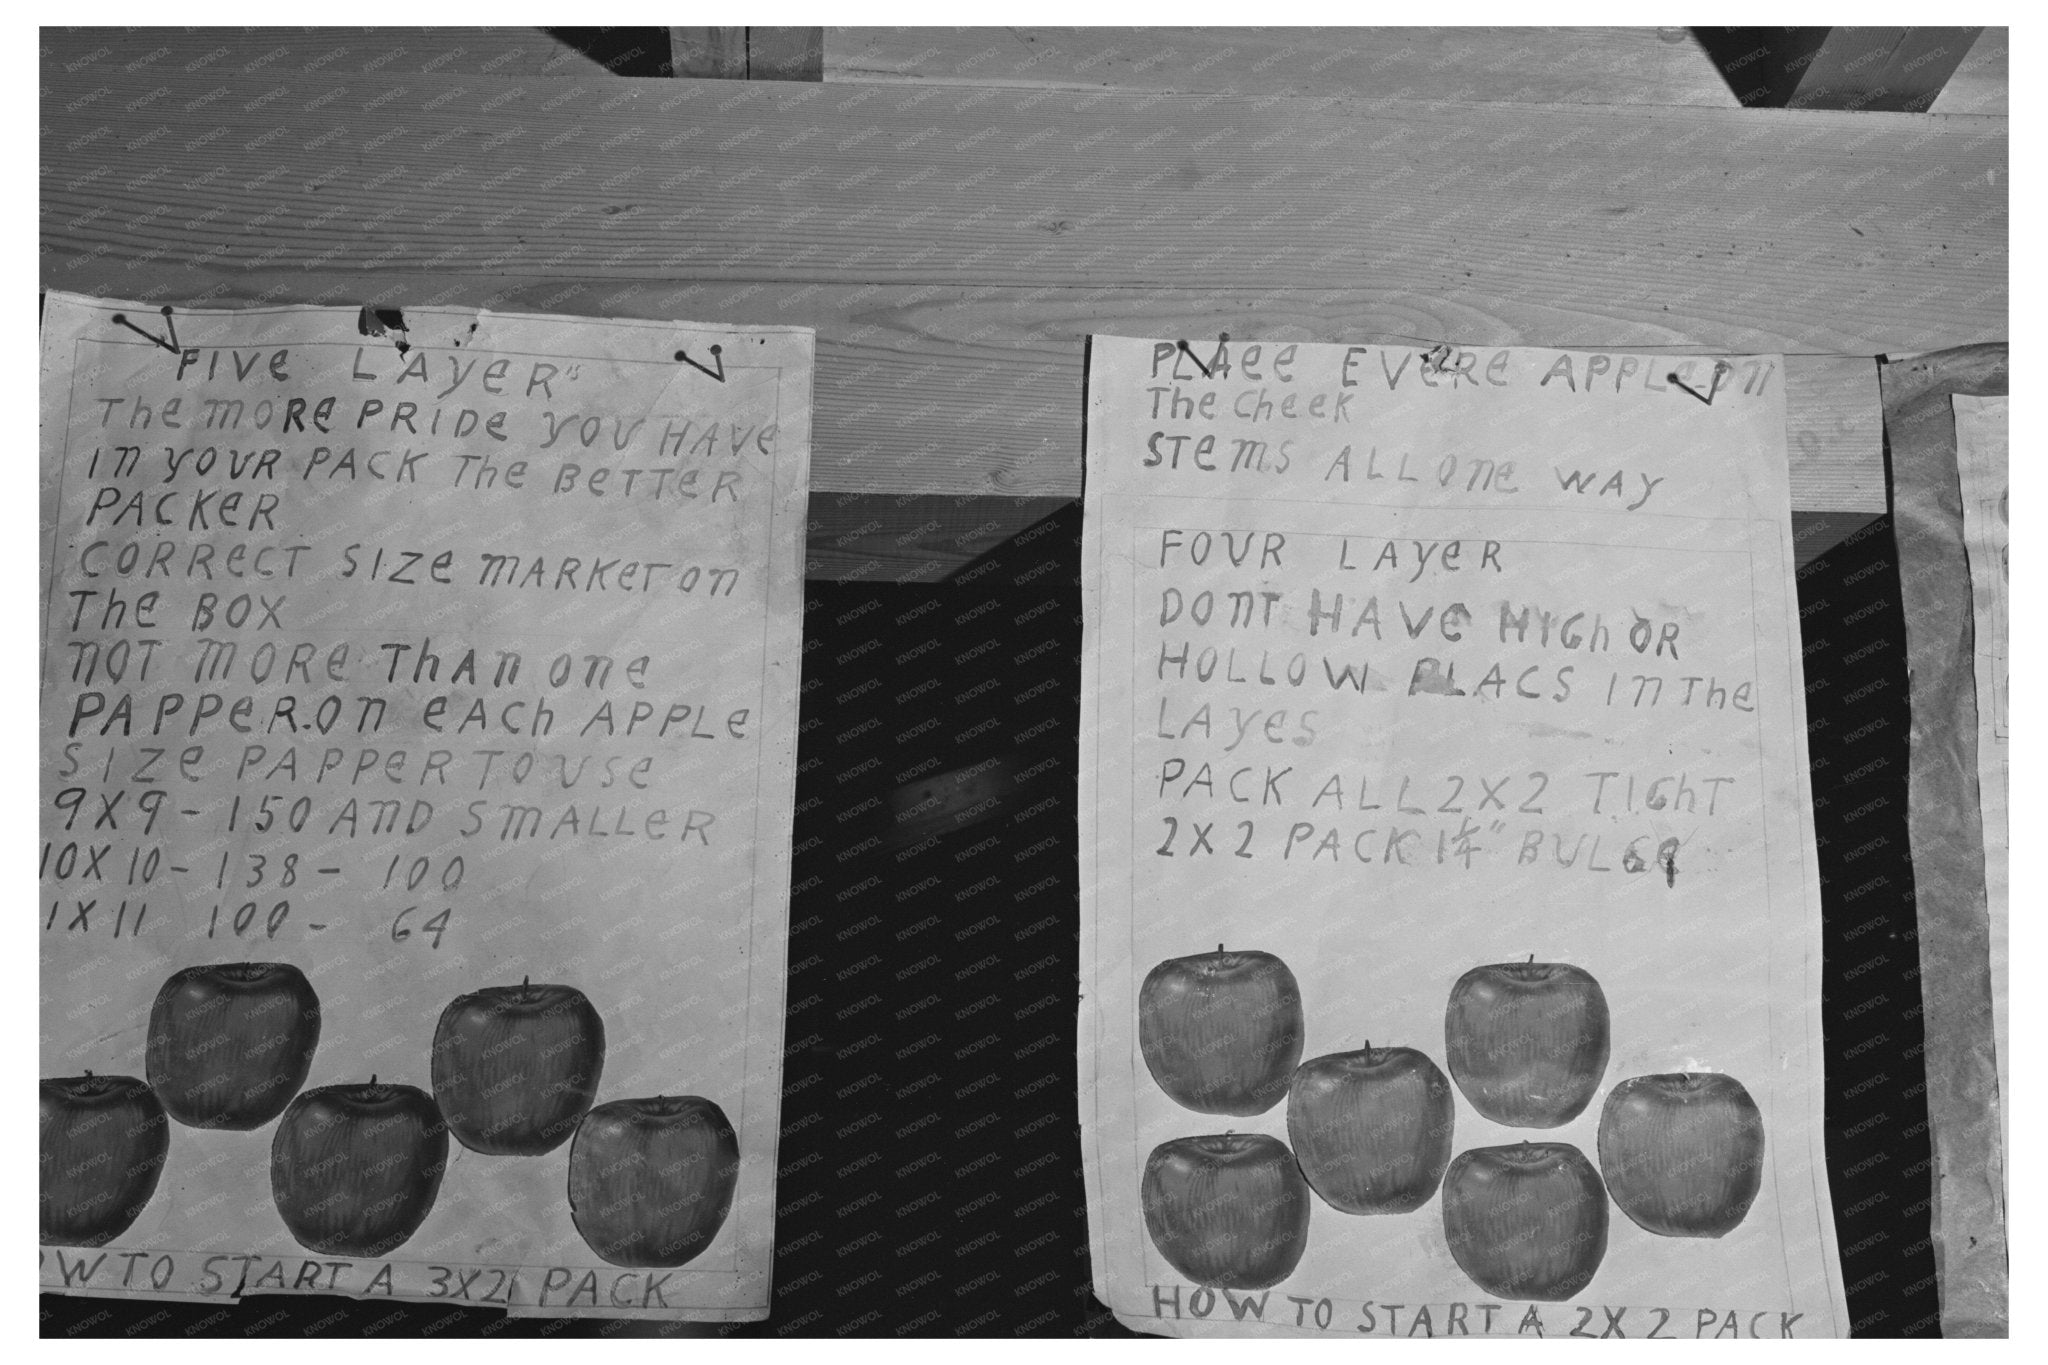 FIVE LAYER"
THE MORE PRIDE YOU HAVE
IN YOUR PACK THE BETTER
PACKER
CORRECT SIZE MARKET ON
THE BOX
NOT MORE THAN ONE
PAPPER.ON EACH APPLE
SIZE PAPPER TO USE
9X9 - 150 AND SMALLER
10X10 - 138 - 100
1X11 100 - 64
OW TO START A 3X2 PACK
PLACE EVERE APPLE ON
THE CHEEK
STEMS ALL ONE WAY
FOUR LAYER
DONT HAVE HIGH OR
HOLLOW PLACS IN THE
LAYES
PACK ALL 2X2 TIGHT
2X2 PACK 1¼" BULGE
HOW TO START A 2X2 PACK
KNOWOL